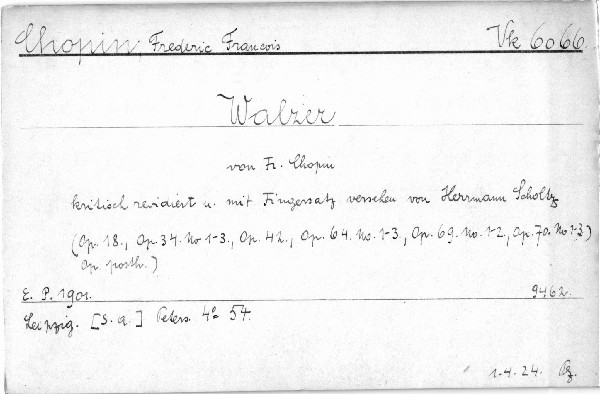 Chopin, Frederic Francois Vk 6066.
Walzer
von Fr. Chopin
kritisch revidiert u. mit Fingersatz versehen von Herrmann Scholtz
(Op. 18., Op. 34. No 1-3., Op. 42., Op. 64. No. 1-3., Op. 69. No. 1-2., Op. 70. No 1-3)
Op. posth.)
E. P. 1901. 9462.
Leipzig. [S. a.] Peters. 4° 54.
1.4.24.